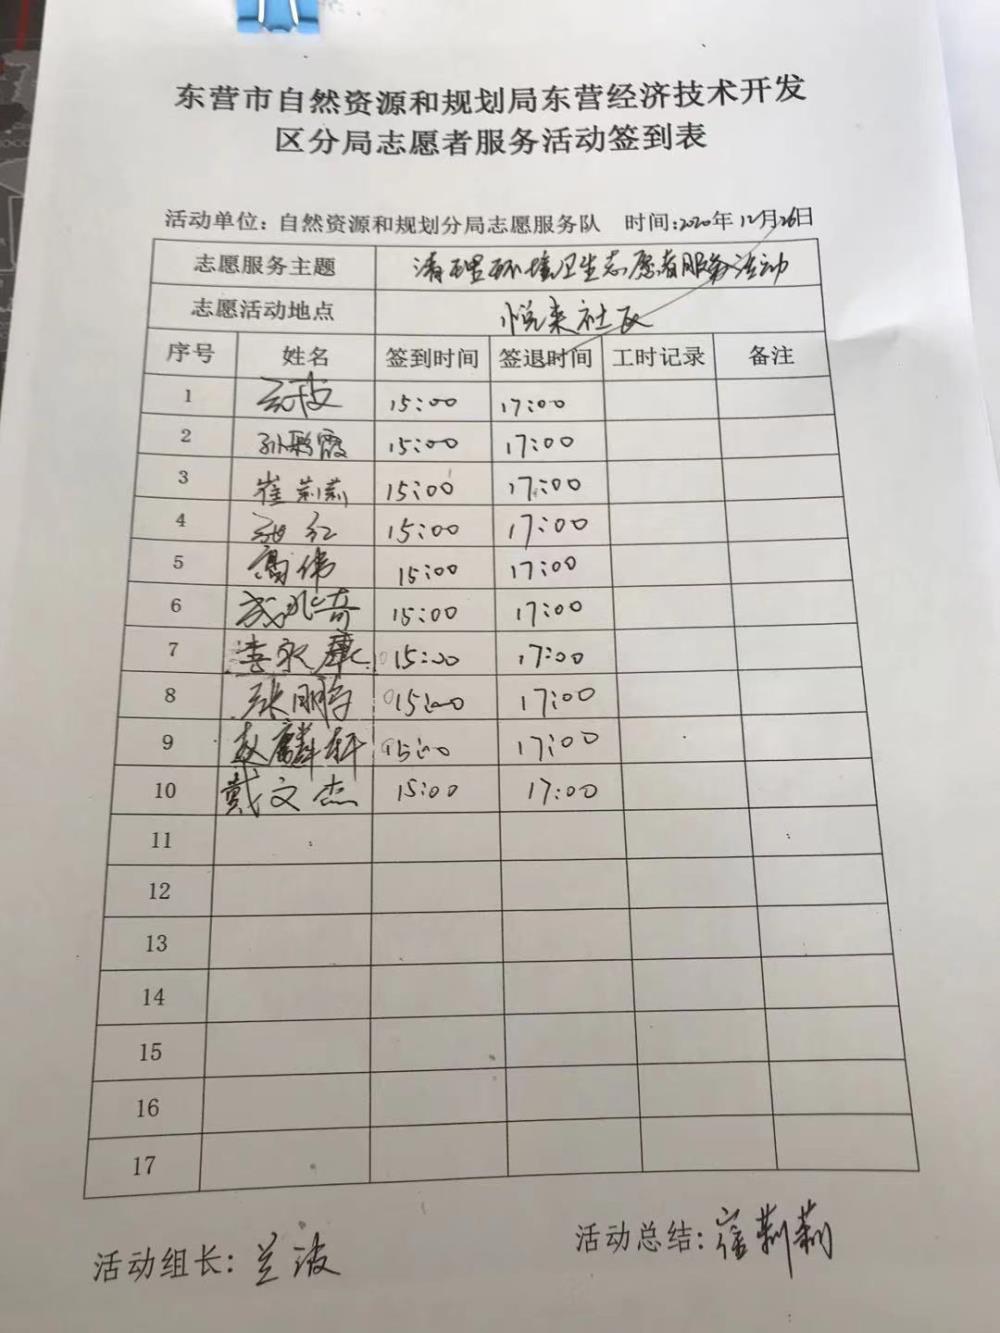 东营市自然资源和规划局东营经济技术开发
区分局志愿者服务活动签到表
活动单位：自然资源和规划分局志愿服务队 时间:2020年12月26日
志愿服务主题 清理环境卫生志愿者服务活动
志愿活动地点 悦来社区
序号 姓名 签到时间 签退时间 工时记录 备注
1 15:00 17:00
2 孙彩霞 15:00 17:00
3 崔莉莉 15:00 17:00
4 红 15:00 17:00
5 高伟 15:00 17:00
6 15:00 17:00
7 李永康 15:00 17:00
8 张刚 15:00 17:00
9 赵麟轩 15:00 17:00
10 戴文杰 15:00 17:00
11
12
13
14
15
16
17
活动组长：兰波 活动总结：崔莉莉